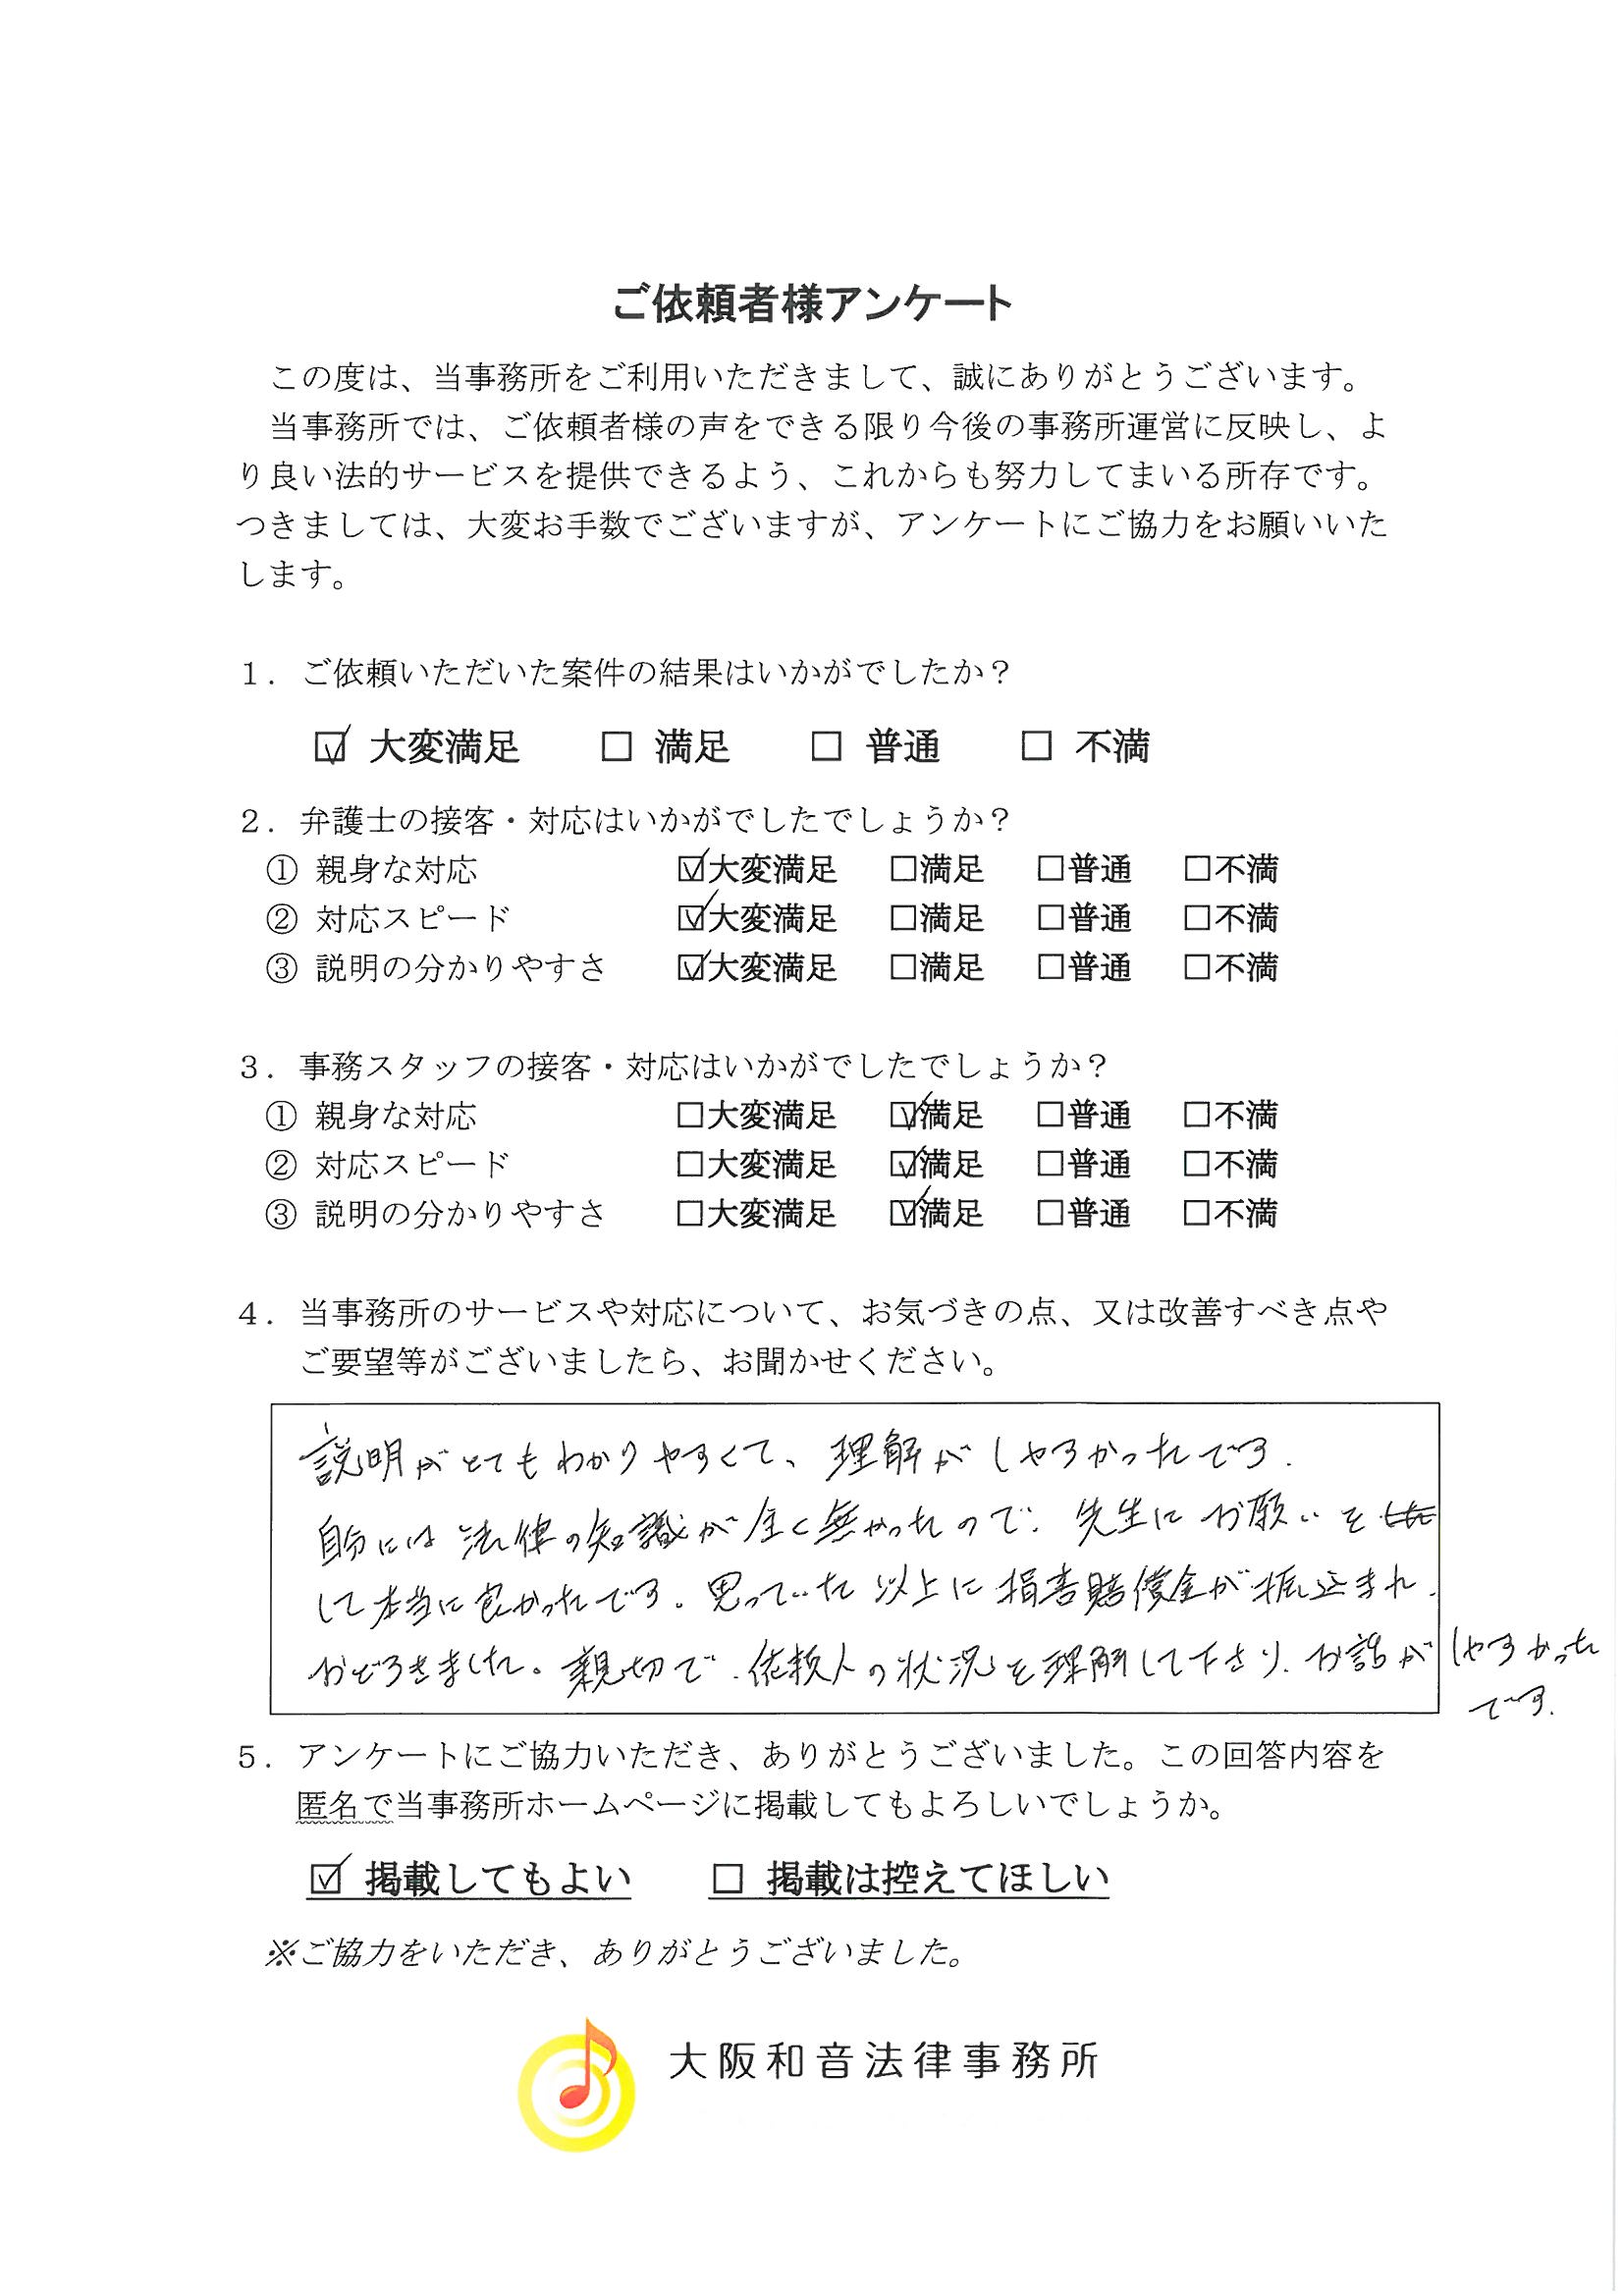 ご依頼者様アンケート
この度は、当事務所をご利用いただきまして、誠にありがとうございます。
当事務所では、ご依頼者様の声をできる限り今後の事務所運営に反映し、よ
り良い法的サービスを提供できるよう、これからも努力してまいる所存です。
つきましては、大変お手数でございますが、アンケートにご協力をお願いいた
します。
１．ご依頼いただいた案件の結果はいかがでしたか？
☑ 大変満足 □ 満足 □ 普通 □ 不満
２．弁護士の接客・対応はいかがでしたでしょうか？
① 親身な対応 ☑大変満足 □満足 □普通 □不満
② 対応スピード ☑大変満足 □満足 □普通 □不満
③ 説明の分かりやすさ ☑大変満足 □満足 □普通 □不満
３．事務スタッフの接客・対応はいかがでしたでしょうか？
① 親身な対応 □大変満足 ☑満足 □普通 □不満
② 対応スピード □大変満足 ☑満足 □普通 □不満
③ 説明の分かりやすさ □大変満足 ☑満足 □普通 □不満
４．当事務所のサービスや対応について、お気づきの点、又は改善すべき点や
ご要望等がございましたら、お聞かせください。
説明がとてもわかりやすくて、理解がしやすかったです.
自分には法律の知識が全く無かったので、先生にお願いを
して本当に良かったです. 思っていた以上に損害賠償金が振込まれ、
おどろきました。親切で、依頼人の状況を理解して下さり、お話がしやすかった
です.
５．アンケートにご協力いただき、ありがとうございました。この回答内容を
匿名で当事務所ホームページに掲載してもよろしいでしょうか。
☑ 掲載してもよい □ 掲載は控えてほしい
※ご協力をいただき、ありがとうございました。
大阪和音法律事務所